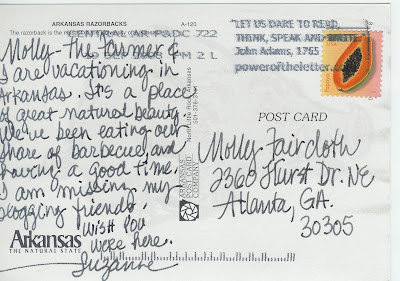 ARKANSAS RAZORBACKS
A-120
The razorback is the
722
SEP 2008 PM 2 L
"LET US DARE TO READ,
THINK, SPEAK AND WRITE."
John Adams, 1765
poweroftheletter.com
Molly - the farmer &
I are vacationing in
Arkansas. It's a place
of great natural beauty.
We've been eating our
share of barbecue and
having a good time.
I am missing my
blogging friends.
Wish you
were here.
Suzanne
Arkansas
THE NATURAL STATE
North Little Rock, Arkansas
ARKANSAS
COMPANY
POST CARD
Molly Faircloth
2360 Hurst Dr. NE
Atlanta, GA.
30305